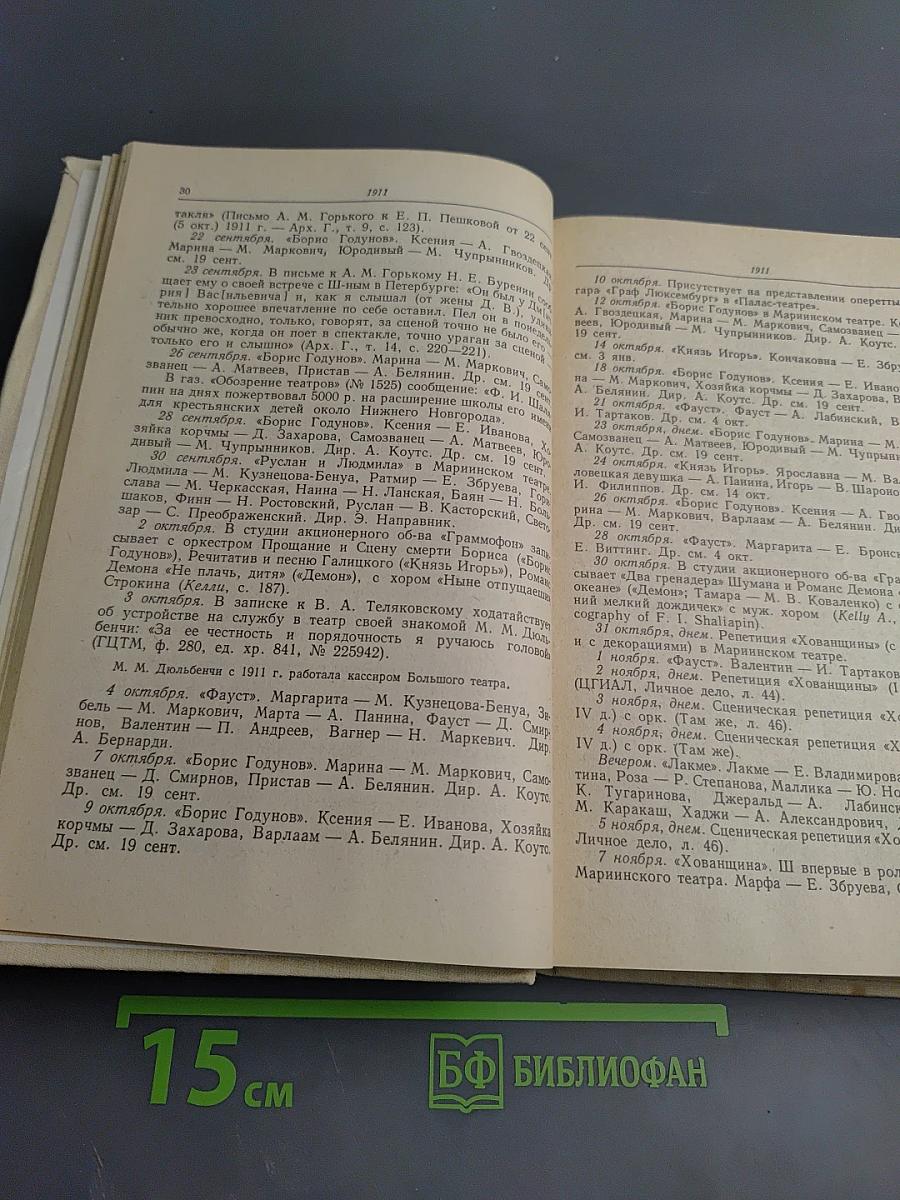 30
1911
такля» (Письмо А. М. Горького к Е. П. Пешковой от 22 сент.
(5 окт.) 1911 г. — Арх. Г., т. 9, с. 123).
22 сентября. «Борис Годунов». Ксения — А. Гвоздецкая,
Марина — М. Маркович, Юродивый — М. Чупрынников. Др.
см. 19 сент.
23 сентября. В письме к А. М. Горькому Н. Е. Буренин сооб-
щает ему о своей встрече с Ш-ным в Петербурге: «Он был у Дм[ит-
рия] Вас[ильевича] и, как я слышал (от жены Д. В.),
тельно хорошее впечатление по себе оставил. Пел он в понедель-
ник превосходно, только, говорят, за сценой точно не было его —
обычно же, когда он поет в спектакле, точно ураган за сценой
только его и слышно» (Арх. Г., т. 14, с. 220—221).
26 сентября. «Борис Годунов». Марина — М. Маркович, Само-
званец — А. Матвеев, Пристав — А. Белянин. Др. см. 19 сент.
В газ. «Обозрение театров» (№ 1525) сообщение: «Ф. И. Шаля-
пин на днях пожертвовал 5000 р. на расширение школы его имени
для крестьянских детей около Нижнего Новгорода».
28 сентября. «Борис Годунов». Ксения — Е. Иванова, Хо-
зяйка корчмы — Д. Захарова, Самозванец — А. Матвеев, Юро-
дивый — М. Чупрынников. Дир. А. Коутс. Др. см. 19 сент.
30 сентября. «Руслан и Людмила» в Мариинском театре.
Людмила — М. Кузнецова-Бенуа, Ратмир — Е. Збруева, Гори-
слава — М. Черкасская, Наина — Н. Ланская, Баян — Н. Боль-
шаков, Финн — Н. Ростовский, Руслан — В. Касторский, Свето-
зар — С. Преображенский. Дир. Э. Направник.
2 октября. В студии акционерного об-ва «Граммофон» запи-
сывает с оркестром Прощание и Сцену смерти Бориса («Борис
Годунов»), Речитатив и песню Галицкого («Князь Игорь»), Романс
Демона «Не плачь, дитя» («Демон»), с хором «Ныне отпущаеши»
Строкина (Келли, с. 187).
3 октября. В записке к В. А. Теляковскому ходатайствует
об устройстве на службу в театр своей знакомой М. М. Дюль-
бенчи: «За ее честность и порядочность я ручаюсь головой»
(ГЦТМ, ф. 280, ед. хр. 841, № 225942).
М. М. Дюльбенчи с 1911 г. работала кассиром Большого театра.
4 октября. «Фауст». Маргарита — М. Кузнецова-Бенуа, Зи-
бель — М. Маркович, Марта — А. Панина, Фауст — Д. Смир-
нов, Валентин — П. Андреев, Вагнер — Н. Маркевич. Дир.
А. Бернарди.
7 октября. «Борис Годунов». Марина — М. Маркович, Само-
званец — Д. Смирнов, Пристав — А. Белянин. Дир. А. Коутс.
Др. см. 19 сент.
9 октября. «Борис Годунов». Ксения — Е. Иванова, Хозяйка
корчмы — Д. Захарова, Варлаам — А. Белянин. Дир. А. Коутс.
Др. см. 19 сент.
1911
10 октября. Присутствует на представлении оперетты
гара «Граф Люксембург» в «Палас-театре».
12 октября. «Борис Годунов» в Мариинском театре.
А. Гвоздецкая, Марина — М. Маркович, Самозванец —
веев, Юродивый — М. Чупрынников. Дир. А. Коутс.
19 сент.
14 октября. «Князь Игорь». Кончаковна — Е. Збру
см. 3 янв.
18 октября. «Борис Годунов». Ксения — Е. Ивано
на — М. Маркович, Хозяйка корчмы — Д. Захарова, В
А. Белянин. Дир. А. Коутс. Др. см. 19 сент.
21 октября. «Фауст». Фауст — А. Лабинский, В
И. Тартаков. Др. см. 4 окт.
23 октября, днем. «Борис Годунов». Марина — М.
Самозванец — А. Матвеев, Юродивый — М. Чупрынн
А. Коутс. Др. см. 19 сент.
24 октября. «Князь Игорь». Ярославна — М. Ва
ловецкая девушка — А. Панина, Игорь — В. Шароно
И. Филиппов. Др. см. 14 окт.
26 октября. «Борис Годунов». Ксения — А. Гво
рина — М. Маркович, Варлаам — А. Белянин. Ди
Др. см. 19 сент.
28 октября. «Фауст». Маргарита — Е. Бронск
Е. Виттинг. Др. см. 4 окт.
30 октября. В студии акционерного об-ва «Гра
сывает «Два гренадера» Шумана и Романс Демона «
океане» («Демон»; Тамара — М. В. Коваленко) с
ний мелкий дождичек» с муж. хором (Kelly A.,
cography of F. I. Shaliapin).
31 октября, днем. Репетиция «Хованщины» (с
и с декорациями) в Мариинском театре.
1 ноября. «Фауст». Валентин — И. Тартаков
2 ноября, днем. Репетиция «Хованщины» (I
(ЦГИАЛ, Личное дело, л. 44).
3 ноября, днем. Сценическая репетиция «Хо
IV д.) с орк. (Там же, л. 46).
4 ноября, днем. Сценическая репетиция «Х
IV д.) с орк. (Там же).
Вечером. «Лакме». Лакме — Е. Владимирова
тина, Роза — Р. Степанова, Маллика — Ю. Но
К. Тугаринова, Джеральд — А. Лабинск
М. Каракаш, Хаджи — А. Александрович,
5 ноября, днем. Сценическая репетиция «Хо
Личное дело, л. 46).
7 ноября. «Хованщина». Ш впервые в рол
Мариинского театра. Марфа — Е. Збруева,
15 см
БФ БИБЛИОФАН